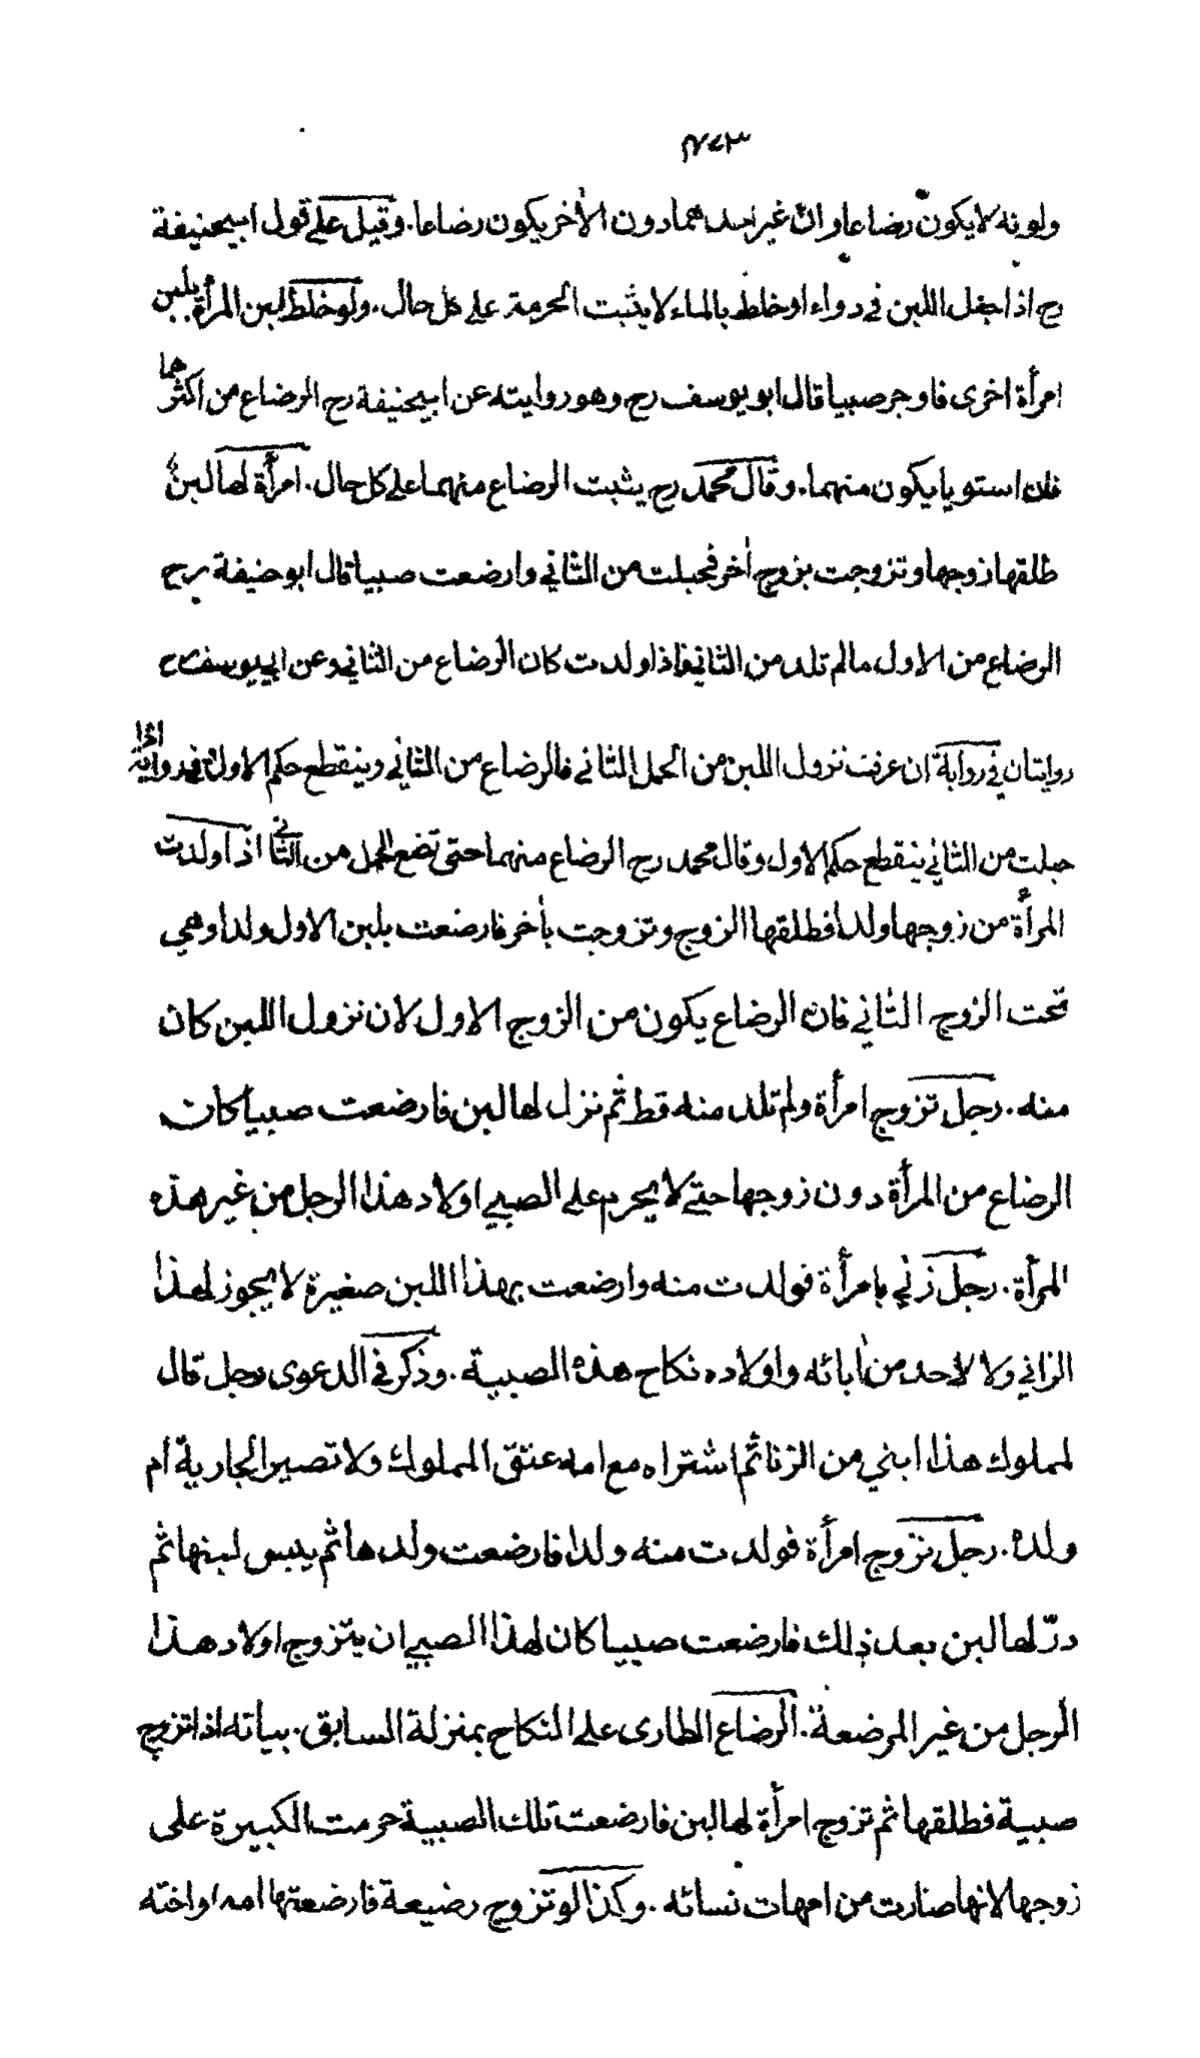 ولونه لا يكون رضاعا وان غير احدهما دون الاٰخر يكون رضاعا. وقيل على قول ابيحنيفة
رح اذا جعل اللبن فى دواء او خلط بالماء لا يثبت الحرمة على كل حال. ولو خلط لبن المرأة بلبن
امرأة اخرى فاوجر صبيا قال ابو يوسف رح وهو رواية عن ابيحنيفة رح الرضاع من اكثرهما
فان استويا يكون منهما. وقال محمد رح يثبت الرضاع منهما على كل حال. امرأة لها لبن
طلقها زوجها وتزوجت بزوج اٰخر فحبلت من الثانى وارضعت صبيا قال ابو حنيفة رح
الرضاع من الاول مالم تلد من الثانى فاذا ولدت كان الرضاع من الثانى وعن ابى يوسف رح
روايتان فى رواية ان عرفت نزول اللبن من الحمل الثانى فالرضاع من الثانى وينقطع حكم الاول وفى رواية اذا
حبلت من الثانى ينقطع حكم الاول وقال محمد رح الرضاع منهما حتى تضع الحمل من الثانى اذا ولدت
المرأة من زوجها ولدا فطلقها الزوج وتزوجت باٰخر فارضعت بلبن الاول ولدا وهى
تحت الزوج الثانى فان الرضاع يكون من الزوج الاول لان نزول اللبن كان
منه. رجل تزوج امرأة ولم تلد منه قط ثم نزل لها لبن فارضعت صبيا كان
الرضاع من المرأة دون زوجها حتى لا يحرم على الصبى اولاد هذا الرجل من غير هذه
المرأة. رجل زنى بامرأة فولدت منه وارضعت بهذا اللبن صغيرة لا يجوز لهذا
الزانى ولا لاحد من اٰبائه واولاده نكاح هذه الصبية. وذكر فى الدعوى رجل قال
لمملوك هذا ابنى من الزنا ثم اشتراه مع امه عتق المملوك ولا تصير الجارية ام
ولده. رجل تزوج امرأة فولدت منه ولدا فارضعت ولدها ثم يبس لبنها ثم
درّ لها لبن بعد ذلك فارضعت صبيا كان لهذا الصبى ان يتزوج اولاد هذا
الرجل من غير المرضعة. الرضاع الطارى على النكاح بمنزلة السابق. بيانه اذا تزوج
صبية فطلقها ثم تزوج امرأة لها لبن فارضعت تلك الصبية حرمت الكبيرة على
زوجها لانها صارت من امهات نسائه. وكذا لو تزوج رضيعة فارضعتها امه او اخته